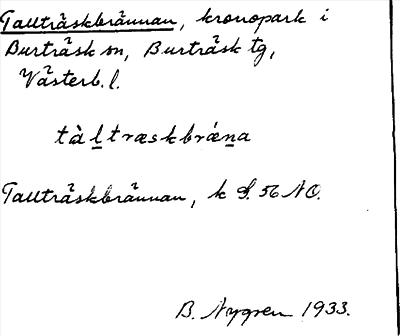 Tallträskbrännan, kronopark i
Burträsk sn, Burträsk tg,
Västerb. l.
tàḻtræskbrǽṉa
Tallträskbrännan, k S. 56 NO.
B. Nygren 1933.